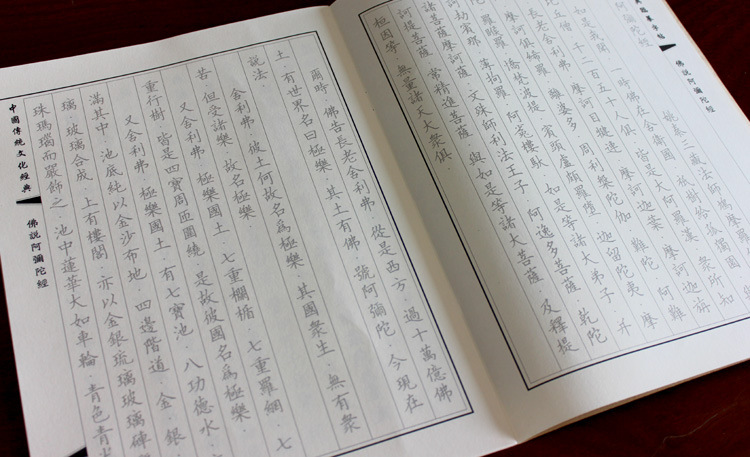 典臨摹字帖
佛說阿彌陀經
阿彌陀經
姚秦三藏法師鳩摩羅
如是我聞．一時佛在舍衛國．祇樹給孤獨園．與
比丘僧．千二百五十人俱．皆是大阿羅漢．眾所知
長老舍利弗．摩訶目犍連．摩訶迦葉．摩訶迦旃
摩訶俱絺羅．離婆多．周利槃陀伽．難陀．阿難
陀．羅睺羅．憍梵波提．賓頭盧頗羅墮．迦留陀夷．摩
訶劫賓那．薄拘羅．阿㝹樓馱．如是等諸大弟子．并
諸菩薩摩訶薩．文殊師利法王子．阿逸多菩薩．乾陀
訶提菩薩．常精進菩薩．與如是等諸大菩薩．及釋提
桓因等．無量諸天大眾俱．
爾時．佛告長老舍利弗．從是西方．過十萬億佛
土．有世界名曰極樂．其土有佛．號阿彌陀．今現在
說法．
舍利弗．彼土何故名為極樂．其國眾生．無有眾
苦．但受諸樂．故名極樂．
又舍利弗．極樂國土．七重欄楯．七重羅網．七
重行樹．皆是四寶周匝圍繞．是故彼國名為極樂．
又舍利弗．極樂國土．有七寶池．八功德水．
滿其中．池底純以金沙布地．四邊階道．金．銀
璃．玻璃合成．上有樓閣．亦以金銀琉璃玻璃硨
珠瑪瑙而嚴飾之．池中蓮華大如車輪．青色青光
中國傳統文化經典
佛說阿彌陀經